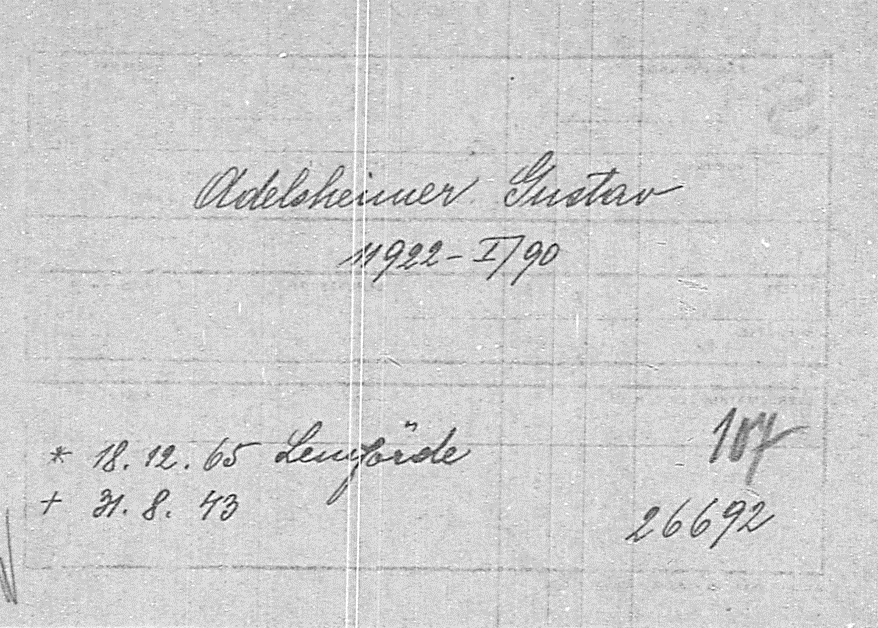 Adelsheimer Gustav
11922-I/90
* 18.12.65 Lemförde
107
+ 31.8.43
26692